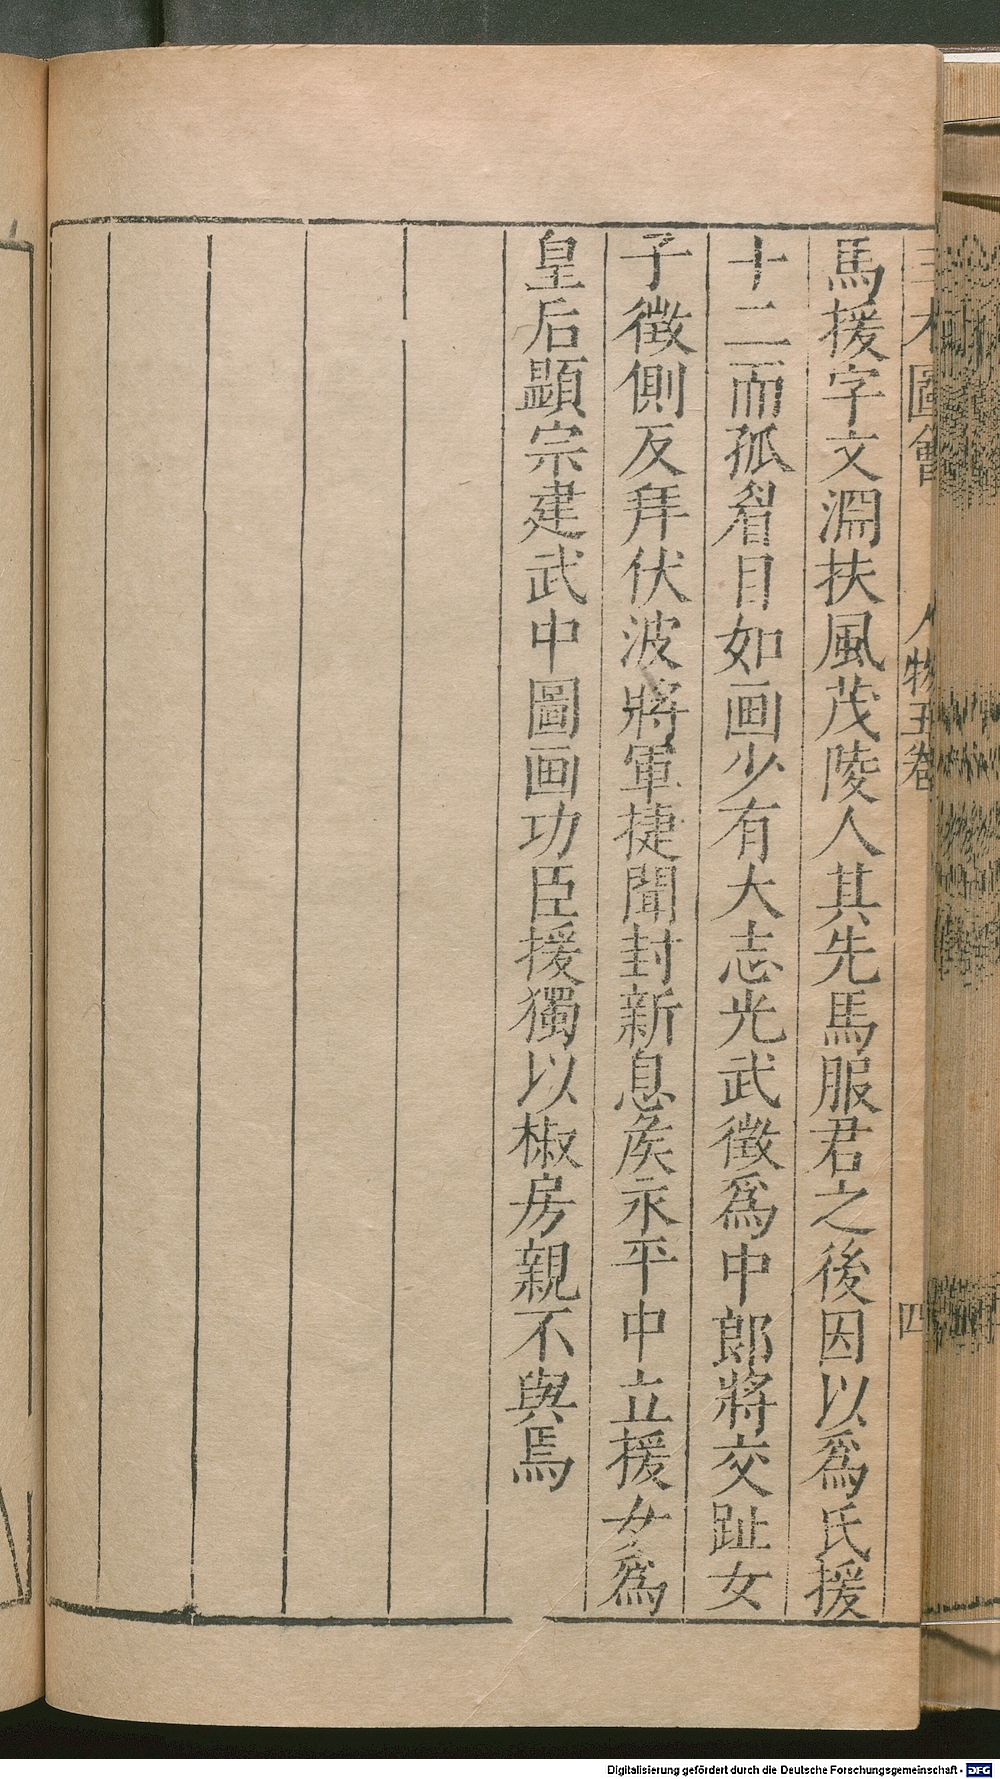 三才圖會 人物五卷 四
馬援字文淵扶風茂陵人其先馬服君之後因以爲氏援
十二而孤眉目如画少有大志光武徵爲中郎將交趾女
子徵側反拜伏波將軍捷聞封新息矦永平中立援女爲
皇后顯宗建武中圖画功臣援獨以椒房親不與焉
Digitalisierung gefördert durch die Deutsche Forschungsgemeinschaft - DFG